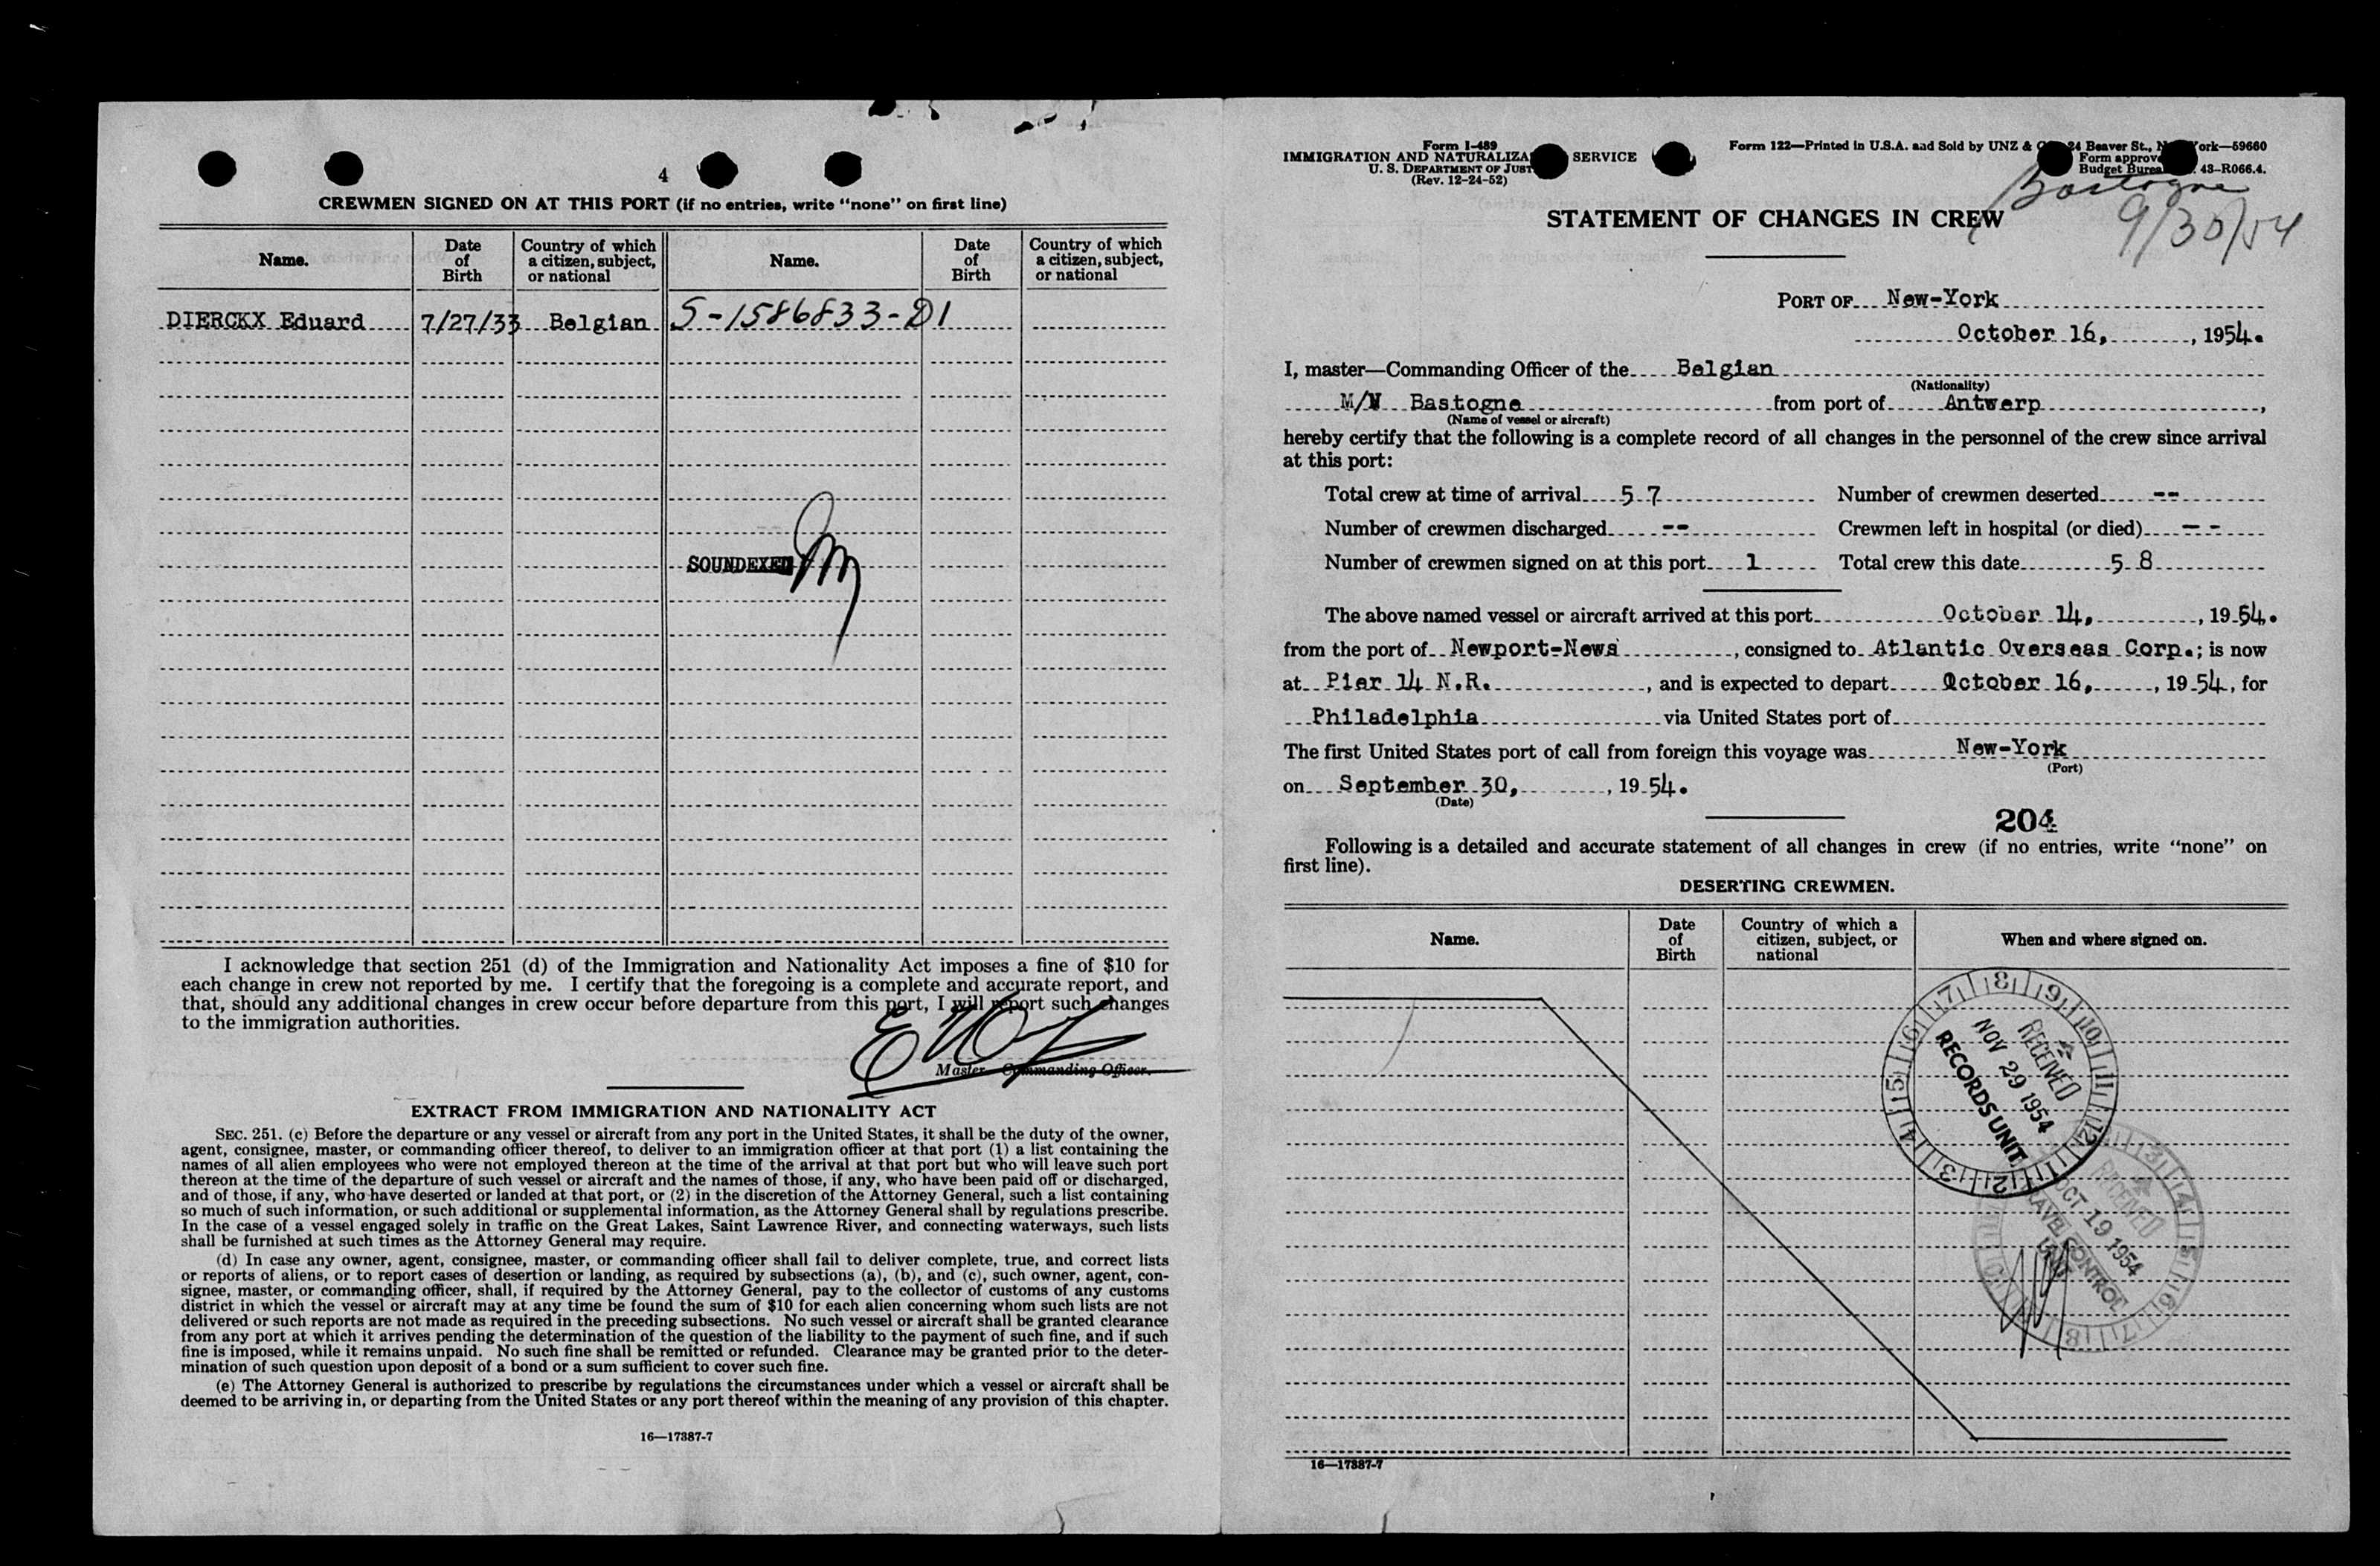 4
CREWMEN SIGNED ON AT THIS PORT (if no entries, write “none” on first line)
Name. Date of Birth Country of which a citizen, subject, or national Name. Date of Birth Country of which a citizen, subject, or national
DIERCKX Eduard 7/27/33 Belgian S-1586833-D1
SOUNDEXED
I acknowledge that section 251 (d) of the Immigration and Nationality Act imposes a fine of $10 for
each change in crew not reported by me. I certify that the foregoing is a complete and accurate report, and
that, should any additional changes in crew occur before departure from this port, I will report such changes
to the immigration authorities.
Master Commanding Officer.
EXTRACT FROM IMMIGRATION AND NATIONALITY ACT
SEC. 251. (c) Before the departure or any vessel or aircraft from any port in the United States, it shall be the duty of the owner,
agent, consignee, master, or commanding officer thereof, to deliver to an immigration officer at that port (1) a list containing the
names of all alien employees who were not employed thereon at the time of the arrival at that port but who will leave such port
thereon at the time of the departure of such vessel or aircraft and the names of those, if any, who have been paid off or discharged,
and of those, if any, who have deserted or landed at that port, or (2) in the discretion of the Attorney General, such a list containing
so much of such information, or such additional or supplemental information, as the Attorney General shall by regulations prescribe.
In the case of a vessel engaged solely in traffic on the Great Lakes, Saint Lawrence River, and connecting waterways, such lists
shall be furnished at such times as the Attorney General may require.
(d) In case any owner, agent, consignee, master, or commanding officer shall fail to deliver complete, true, and correct lists
or reports of aliens, or to report cases of desertion or landing, as required by subsections (a), (b), and (c), such owner, agent, con-
signee, master, or commanding officer, shall, if required by the Attorney General, pay to the collector of customs of any customs
district in which the vessel or aircraft may at any time be found the sum of $10 for each alien concerning whom such lists are not
delivered or such reports are not made as required in the preceding subsections. No such vessel or aircraft shall be granted clearance
from any port at which it arrives pending the determination of the question of the liability to the payment of such fine, and if such
fine is imposed, while it remains unpaid. No such fine shall be remitted or refunded. Clearance may be granted prior to the deter-
mination of such question upon deposit of a bond or a sum sufficient to cover such fine.
(e) The Attorney General is authorized to prescribe by regulations the circumstances under which a vessel or aircraft shall be
deemed to be arriving in, or departing from the United States or any port thereof within the meaning of any provision of this chapter.
16—17387-7
Form I-489
IMMIGRATION AND NATURALIZA SERVICE
U. S. DEPARTMENT OF JUST
(Rev. 12-24-52)
Form 122—Printed in U.S.A. and Sold by UNZ & 24 Beaver St., N ork—59660
Form approve
Budget Burea 43-R066.4.
Bastogne
9/30/54
STATEMENT OF CHANGES IN CREW
PORT OF New-York
October 16, , 1954.
I, master—Commanding Officer of the Belgian
(Nationality)
M/V Bastogne from port of Antwerp ,
(Name of vessel or aircraft)
hereby certify that the following is a complete record of all changes in the personnel of the crew since arrival
at this port:
Total crew at time of arrival 57 Number of crewmen deserted --
Number of crewmen discharged -- Crewmen left in hospital (or died) --
Number of crewmen signed on at this port 1 Total crew this date 58
The above named vessel or aircraft arrived at this port October 14, , 1954.
from the port of Newport-News , consigned to Atlantic Overseas Corp.; is now
at Pier 14 N.R. , and is expected to depart October 16, , 1954, for
Philadelphia via United States port of
The first United States port of call from foreign this voyage was New-York
(Port)
on September 30, , 1954.
(Date)
204
Following is a detailed and accurate statement of all changes in crew (if no entries, write “none” on
first line).
DESERTING CREWMEN.
Name. Date of Birth Country of which a citizen, subject, or national When and where signed on.
RECEIVED
NOV 29 1954
RECORDS UNIT
1 2 3 4 5 6 7 8 9 10 11 12
RECEIVED
OCT 19 1954
CONTROL
16—17387-7